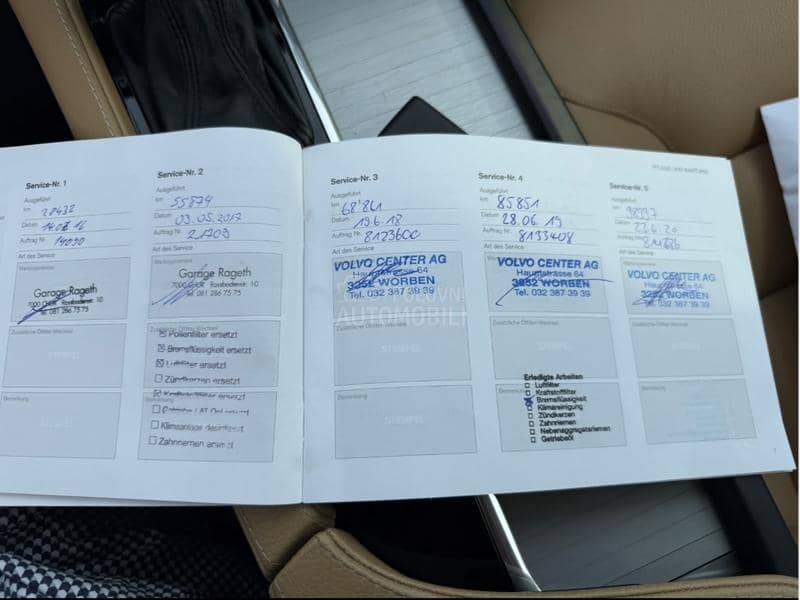 Service-Nr. 1
Ausgeführt
km 28432
Datum 14.06.16
Auftrag Nr. 14090
Art des Service
Wartungsservice
Garage Rageth
7000 Chur, Rossbodenstr. 10
tel. 081 286 75 75
Zusätzliche Ölfilter-Wechsel
STEMPEL
Bemerkung
Service-Nr. 2
Ausgeführt
km 55874
Datum 03.05.2017
Auftrag Nr. 21709
Art des Service
Wartungsservice
Garage Rageth
7000 Chur, Rossbodenstr. 10
tel. 081 286 75 75
Zusätzliche Ölfilter-Wechsel
Pollenfilter ersetzt
Bremsflüssigkeit ersetzt
Luftfilter ersetzt
Zündkerzen ersetzt
Kraftstofffilter ersetzt
Bemerkung
Klimaanlage desinfiziert
Zahnriemen ersetzt
Service-Nr. 3
Ausgeführt
km 68'861
Datum 19.6.18
Auftrag Nr. 8123600
Art des Service
VOLVO CENTER AG
Hauptstrasse 64
3252 WORBEN
Tel. 032 387 39 39
POLOVNI
AUTOMOBILI
Zusätzliche Ölfilter-Wechsel
STEMPEL
Bemerkung
STEMPEL
Service-Nr. 4
Ausgeführt
km 85851
Datum 28.06.19
Auftrag Nr. 8133408
Art des Service
VOLVO CENTER AG
Hauptstrasse 64
3252 WORBEN
Tel. 032 387 39 39
Zusätzliche Ölfilter-Wechsel
STEMPEL
Erledigte Arbeiten
Luftfilter
Kraftstofffilter
Bremsflüssigkeit
Klimareinigung
Zündkerzen
Zahnriemen
Nebenaggregateriemen
Getriebeöl
Bemerkung
PFLEGE UND WARTUNG
Service-Nr. 5
Ausgeführt
km 98997
Datum 22.6.20
Auftrag Nr.
Art des Service
VOLVO CENTER AG
Hauptstrasse 64
3252 WORBEN
Tel. 032 387 39 39
Zusätzliche Ölfilter-Wechsel
STEMPEL
Bemerkung
STEMPEL
7